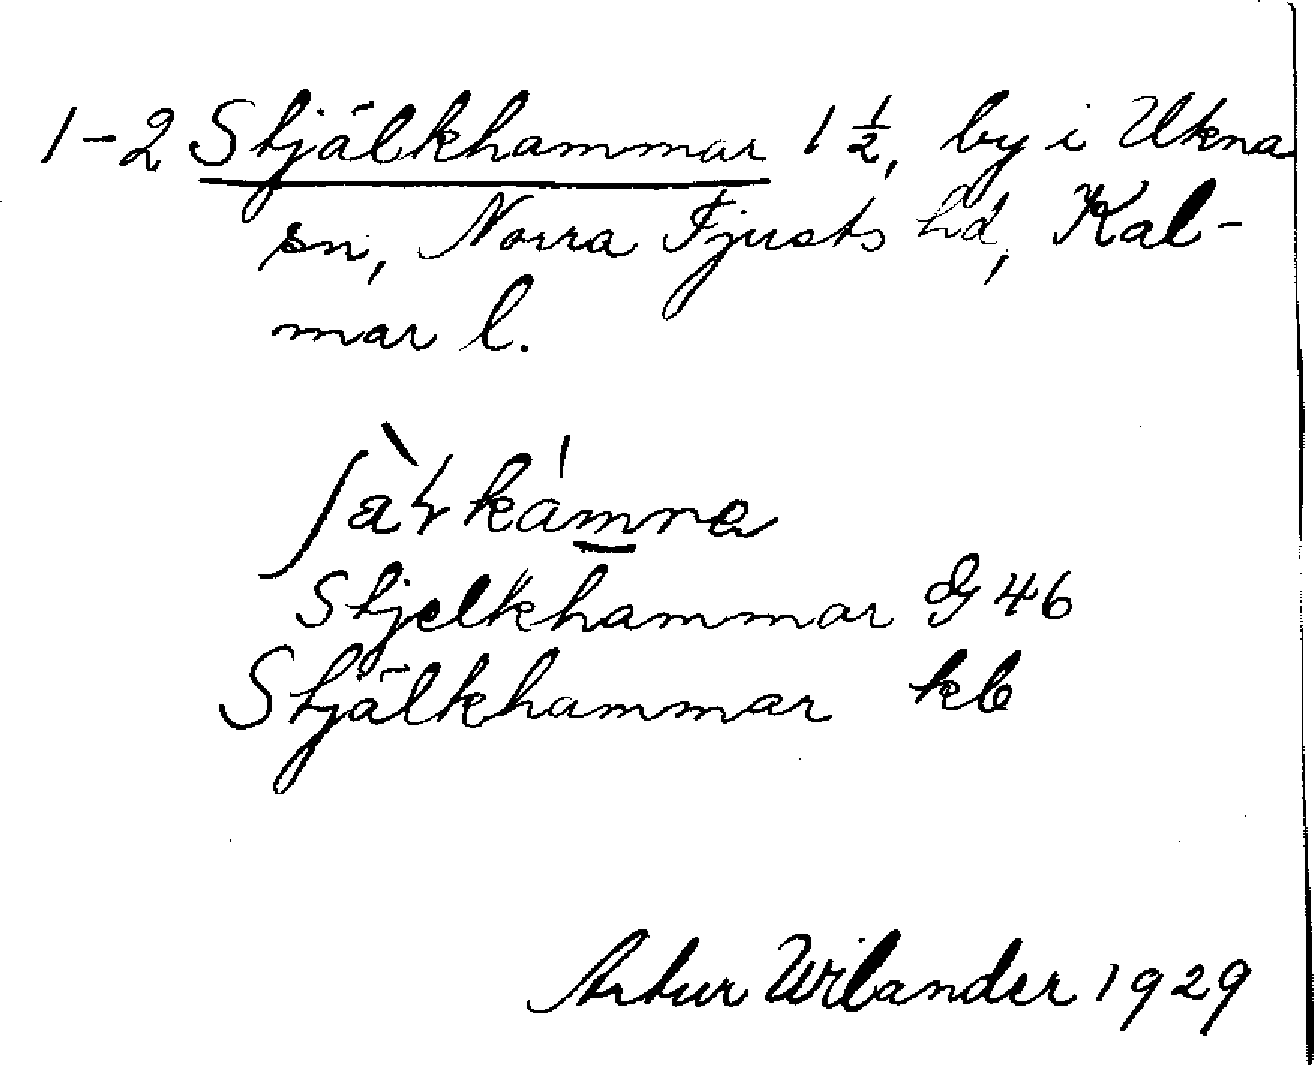 1-2 Skjälkhammar 1 ½, by i Ukna
sn, Norra Tjusts hd, Kal-
mar l.
Skjelkhammar G 46
Skjälkhammar kb
Artur Wilander 1929